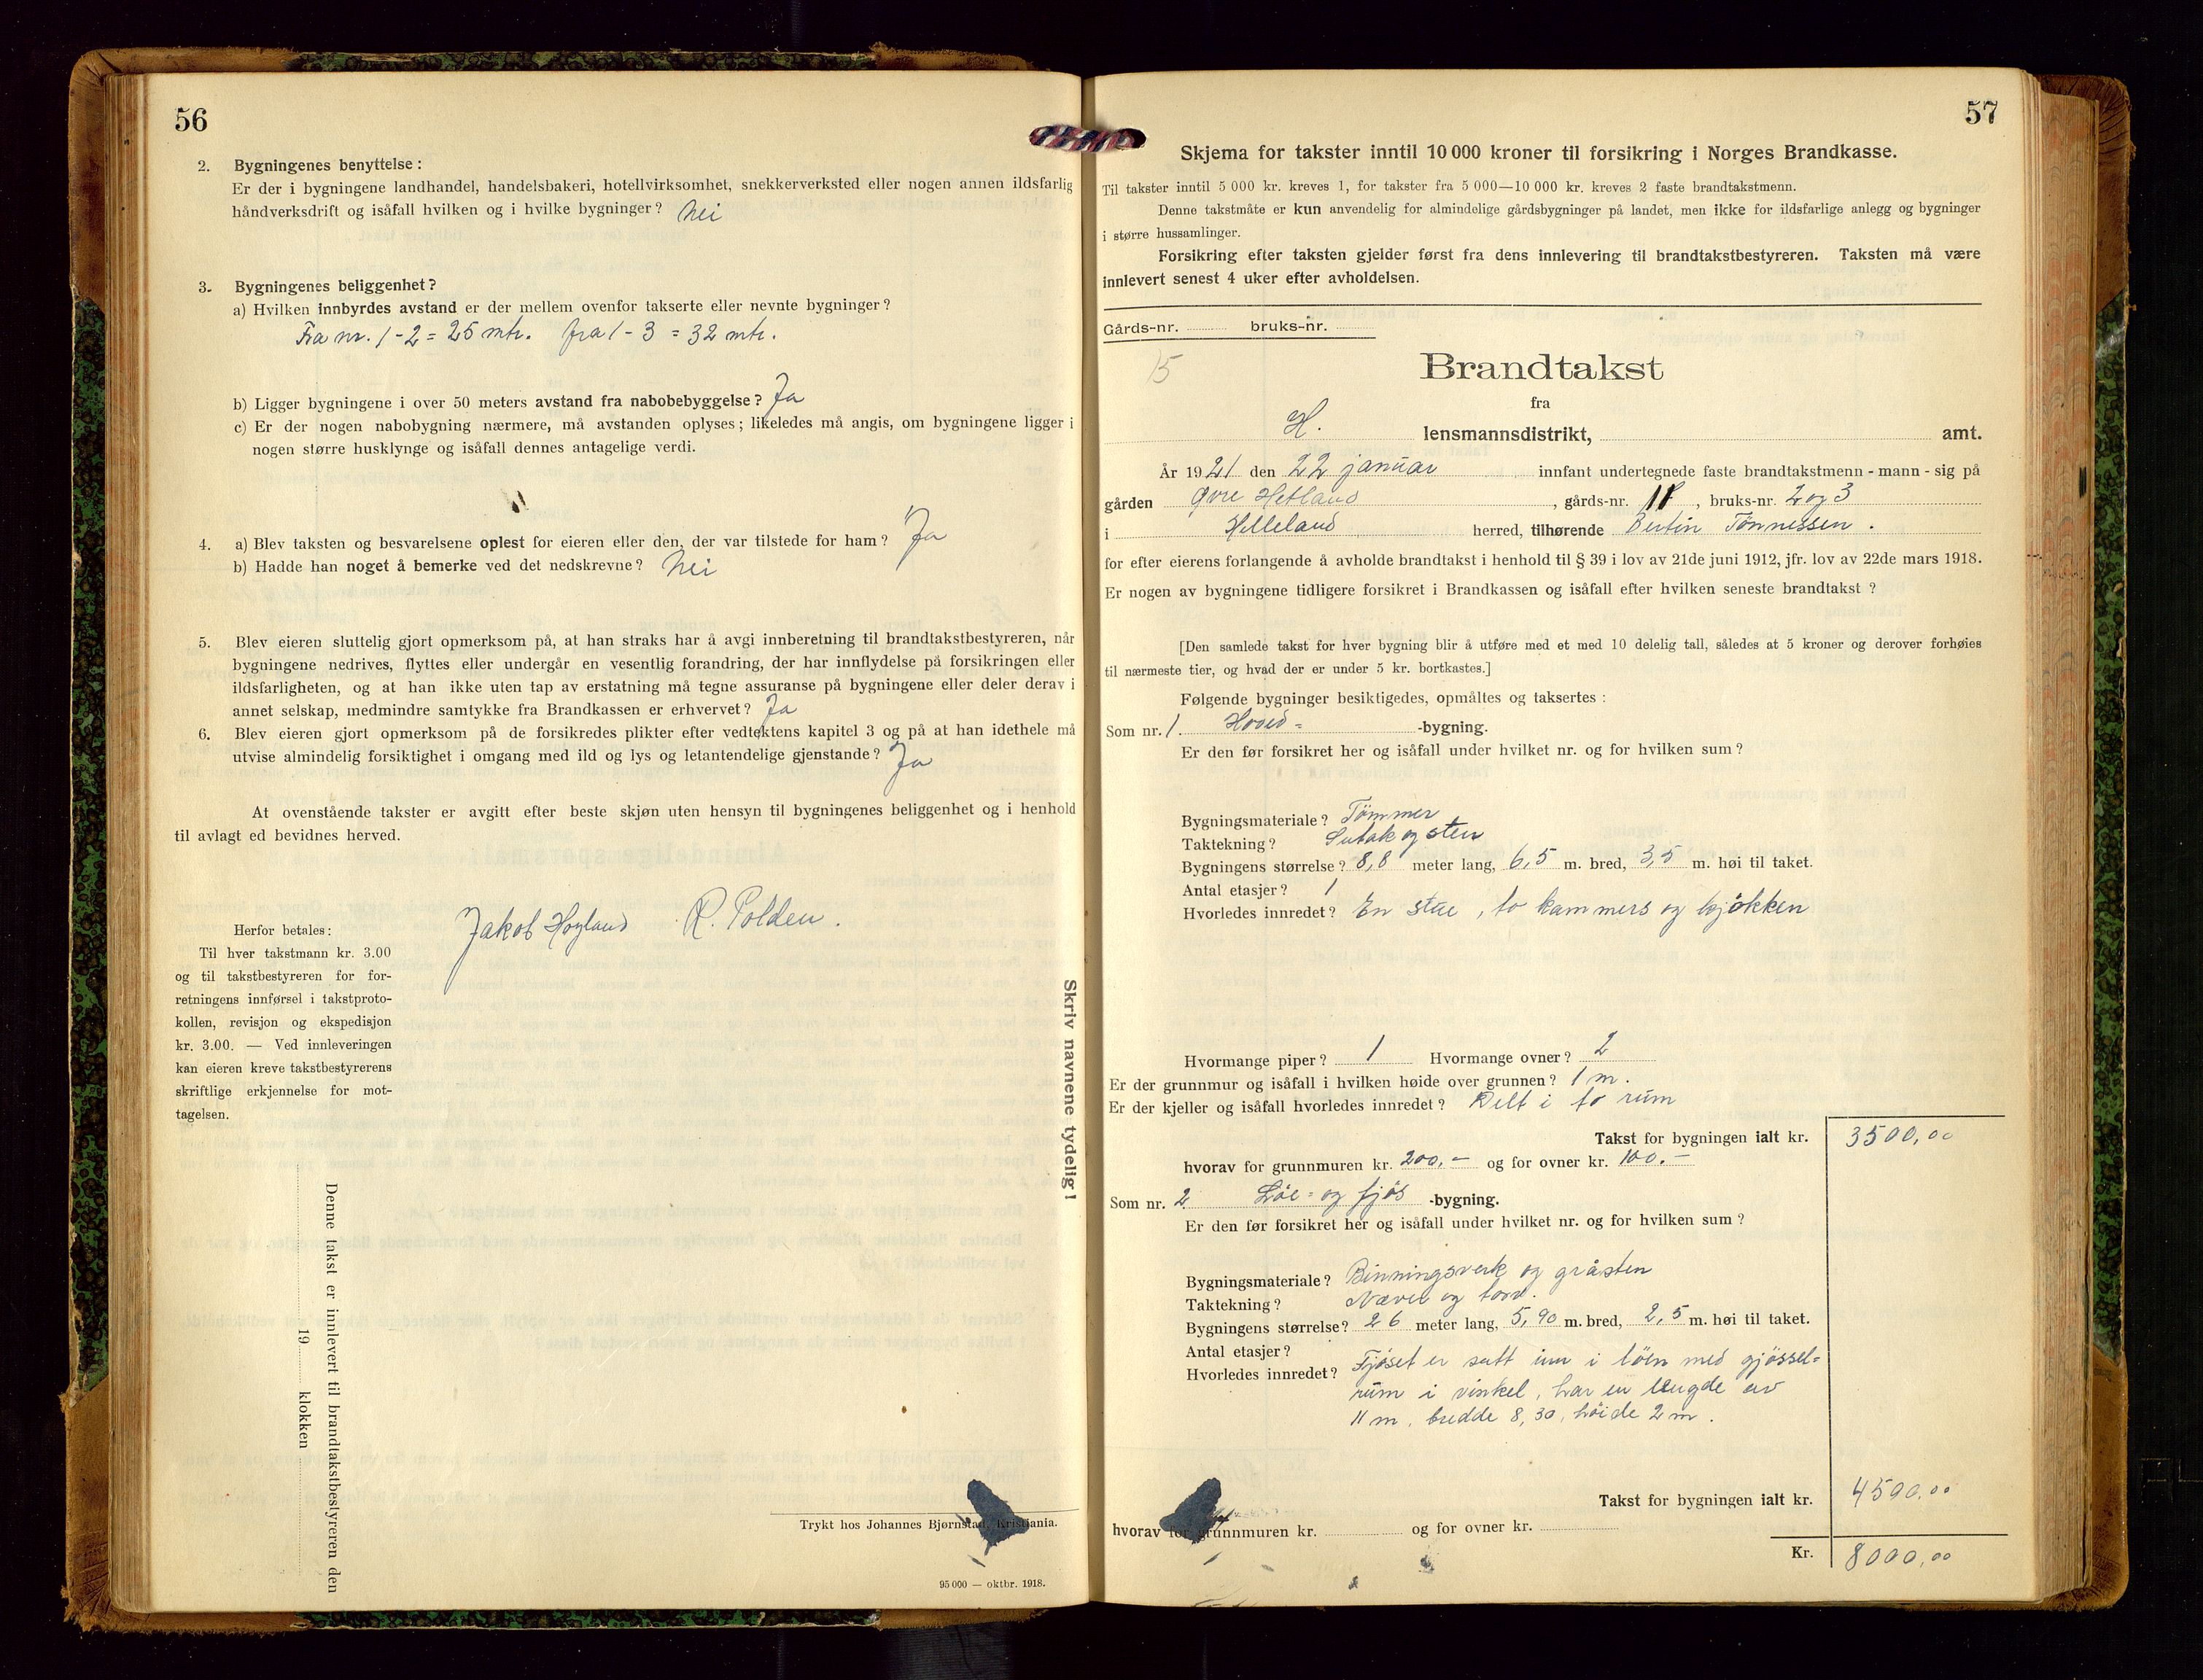 56
2. Bygningenes benyttelse :
Er der i bygningene landhandel, handelsbakeri, hotellvirksomhet, snekkerverksted eller nogen annen ildsfarlig
håndverksdrift og isåfall hvilken og i hvilke bygninger? Nei
3. Bygningenes beliggenhet?
a) Hvilken innbyrdes avstand er der mellem ovenfor takserte eller nevnte bygninger?
Fra nr. 1-2 = 25 mtr. fra 1-3 = 32 mtr.
b) Ligger bygningene i over 50 meters avstand fra nabobebyggelse? Ja
c) Er der nogen nabobygning nærmere, må avstanden oplyses; likeledes må angis, om bygningene ligger i
nogen større husklynge og isåfall dennes antagelige verdi.
4. a) Blev taksten og besvarelsene oplest for eieren eller den, der var tilstede for ham? Ja
b) Hadde han noget å bemerke ved det nedskrevne? Nei
5. Blev eieren sluttelig gjort opmerksom på, at han straks har å avgi innberetning til brandtakstbestyreren, når
bygningene nedrives, flyttes eller undergår en vesentlig forandring, der har innflydelse på forsikringen eller
ildsfarligheten, og at han ikke uten tap av erstatning må tegne assuranse på bygningene eller deler derav i
annet selskap, medmindre samtykke fra Brandkassen er erhvervet? Ja
6. Blev eieren gjort opmerksom på de forsikredes plikter efter vedtektens kapitel 3 og på at han idethele må
utvise almindelig forsiktighet i omgang med ild og lys og letantendelige gjenstande? Ja
At ovenstående takster er avgitt efter beste skjøn uten hensyn til bygningenes beliggenhet og i henhold
til avlagt ed bevidnes herved.
Jakob Høyland R. Polden.
Herfor betales:
Til hver takstmann kr. 3.00
og til takstbestyreren for for-
retningens innførsel i takstproto-
kollen, revisjon og ekspedisjon
kr. 3.00. — Ved innleveringen
kan eieren kreve takstbestyrerens
skriftlige erkjennelse for mot-
tagelsen.
Skriv navnene tydelig!
Denne takst er innlevert til brandtakstbestyreren den
19 klokken
Trykt hos Johannes Bjørnstad, Kristiania.
95 000 — oktbr. 1918.
57
Skjema for takster inntil 10 000 kroner til forsikring i Norges Brandkasse.
Til takster inntil 5 000 kr. kreves 1, for takster fra 5 000—10 000 kr. kreves 2 faste brandtakstmenn.
Denne takstmåte er kun anvendelig for almindelige gårdsbygninger på landet, men ikke for ildsfarlige anlegg og bygninger
i større hussamlinger.
Forsikring efter taksten gjelder først fra dens innlevering til brandtakstbestyreren. Taksten må være
innlevert senest 4 uker efter avholdelsen.
Gårds-nr. bruks-nr.
15
Brandtakst
fra
H. lensmannsdistrikt, amt.
År 1921 den 22 januar innfant undertegnede faste brandtakstmenn - mann - sig på
gården Øvre Hetland, gårds-nr. 11, bruks-nr. 2 og 3
i Helleland herred, tilhørende Bertin Tönnessen.
for efter eierens forlangende å avholde brandtakst i henhold til § 39 i lov av 21de juni 1912, jfr. lov av 22de mars 1918.
Er nogen av bygningene tidligere forsikret i Brandkassen og isåfall efter hvilken seneste brandtakst ?
[Den samlede takst for hver bygning blir å utføre med et med 10 delelig tall, således at 5 kroner og derover forhøies
til nærmeste tier, og hvad der er under 5 kr. bortkastes.]
Følgende bygninger besiktigedes, opmåltes og taksertes :
Som nr. 1. Hoved= -bygning.
Er den før forsikret her og isåfall under hvilket nr. og for hvilken sum ?
Bygningsmateriale? Tömmer
Taktekning? Sutak og sten
Bygningens størrelse? 8,8 meter lang, 6,5 m. bred, 3,5 m. høi til taket.
Antal etasjer? 1
Hvorledes innredet? En stue, to kammers og kjökken
Hvormange piper? 1 Hvormange ovner? 2
Er der grunnmur og isåfall i hvilken høide over grunnen? 1 m.
Er der kjeller og isåfall hvorledes innredet? Delt i to rum
Takst for bygningen ialt kr. 3500,00
hvorav for grunnmuren kr. 200.- og for ovner kr. 100.-
Som nr. 2 Löe= og fjös -bygning.
Er den før forsikret her og isåfall under hvilket nr. og for hvilken sum ?
Bygningsmateriale? Binningsverk og gråsten
Taktekning? Næver og torv.
Bygningens størrelse? 26 meter lang, 5,90 m. bred, 2,5 m. høi til taket.
Antal etasjer?
Hvorledes innredet? Fjöset er satt inn i löen med gjössel=
rum i vinkel, har en lengde av
11 m. bredde 8,30, höide 2 m.
Takst for bygningen ialt kr. 4500,00
hvorav for grunnmuren kr. og for ovner kr.
Kr. 8000,00